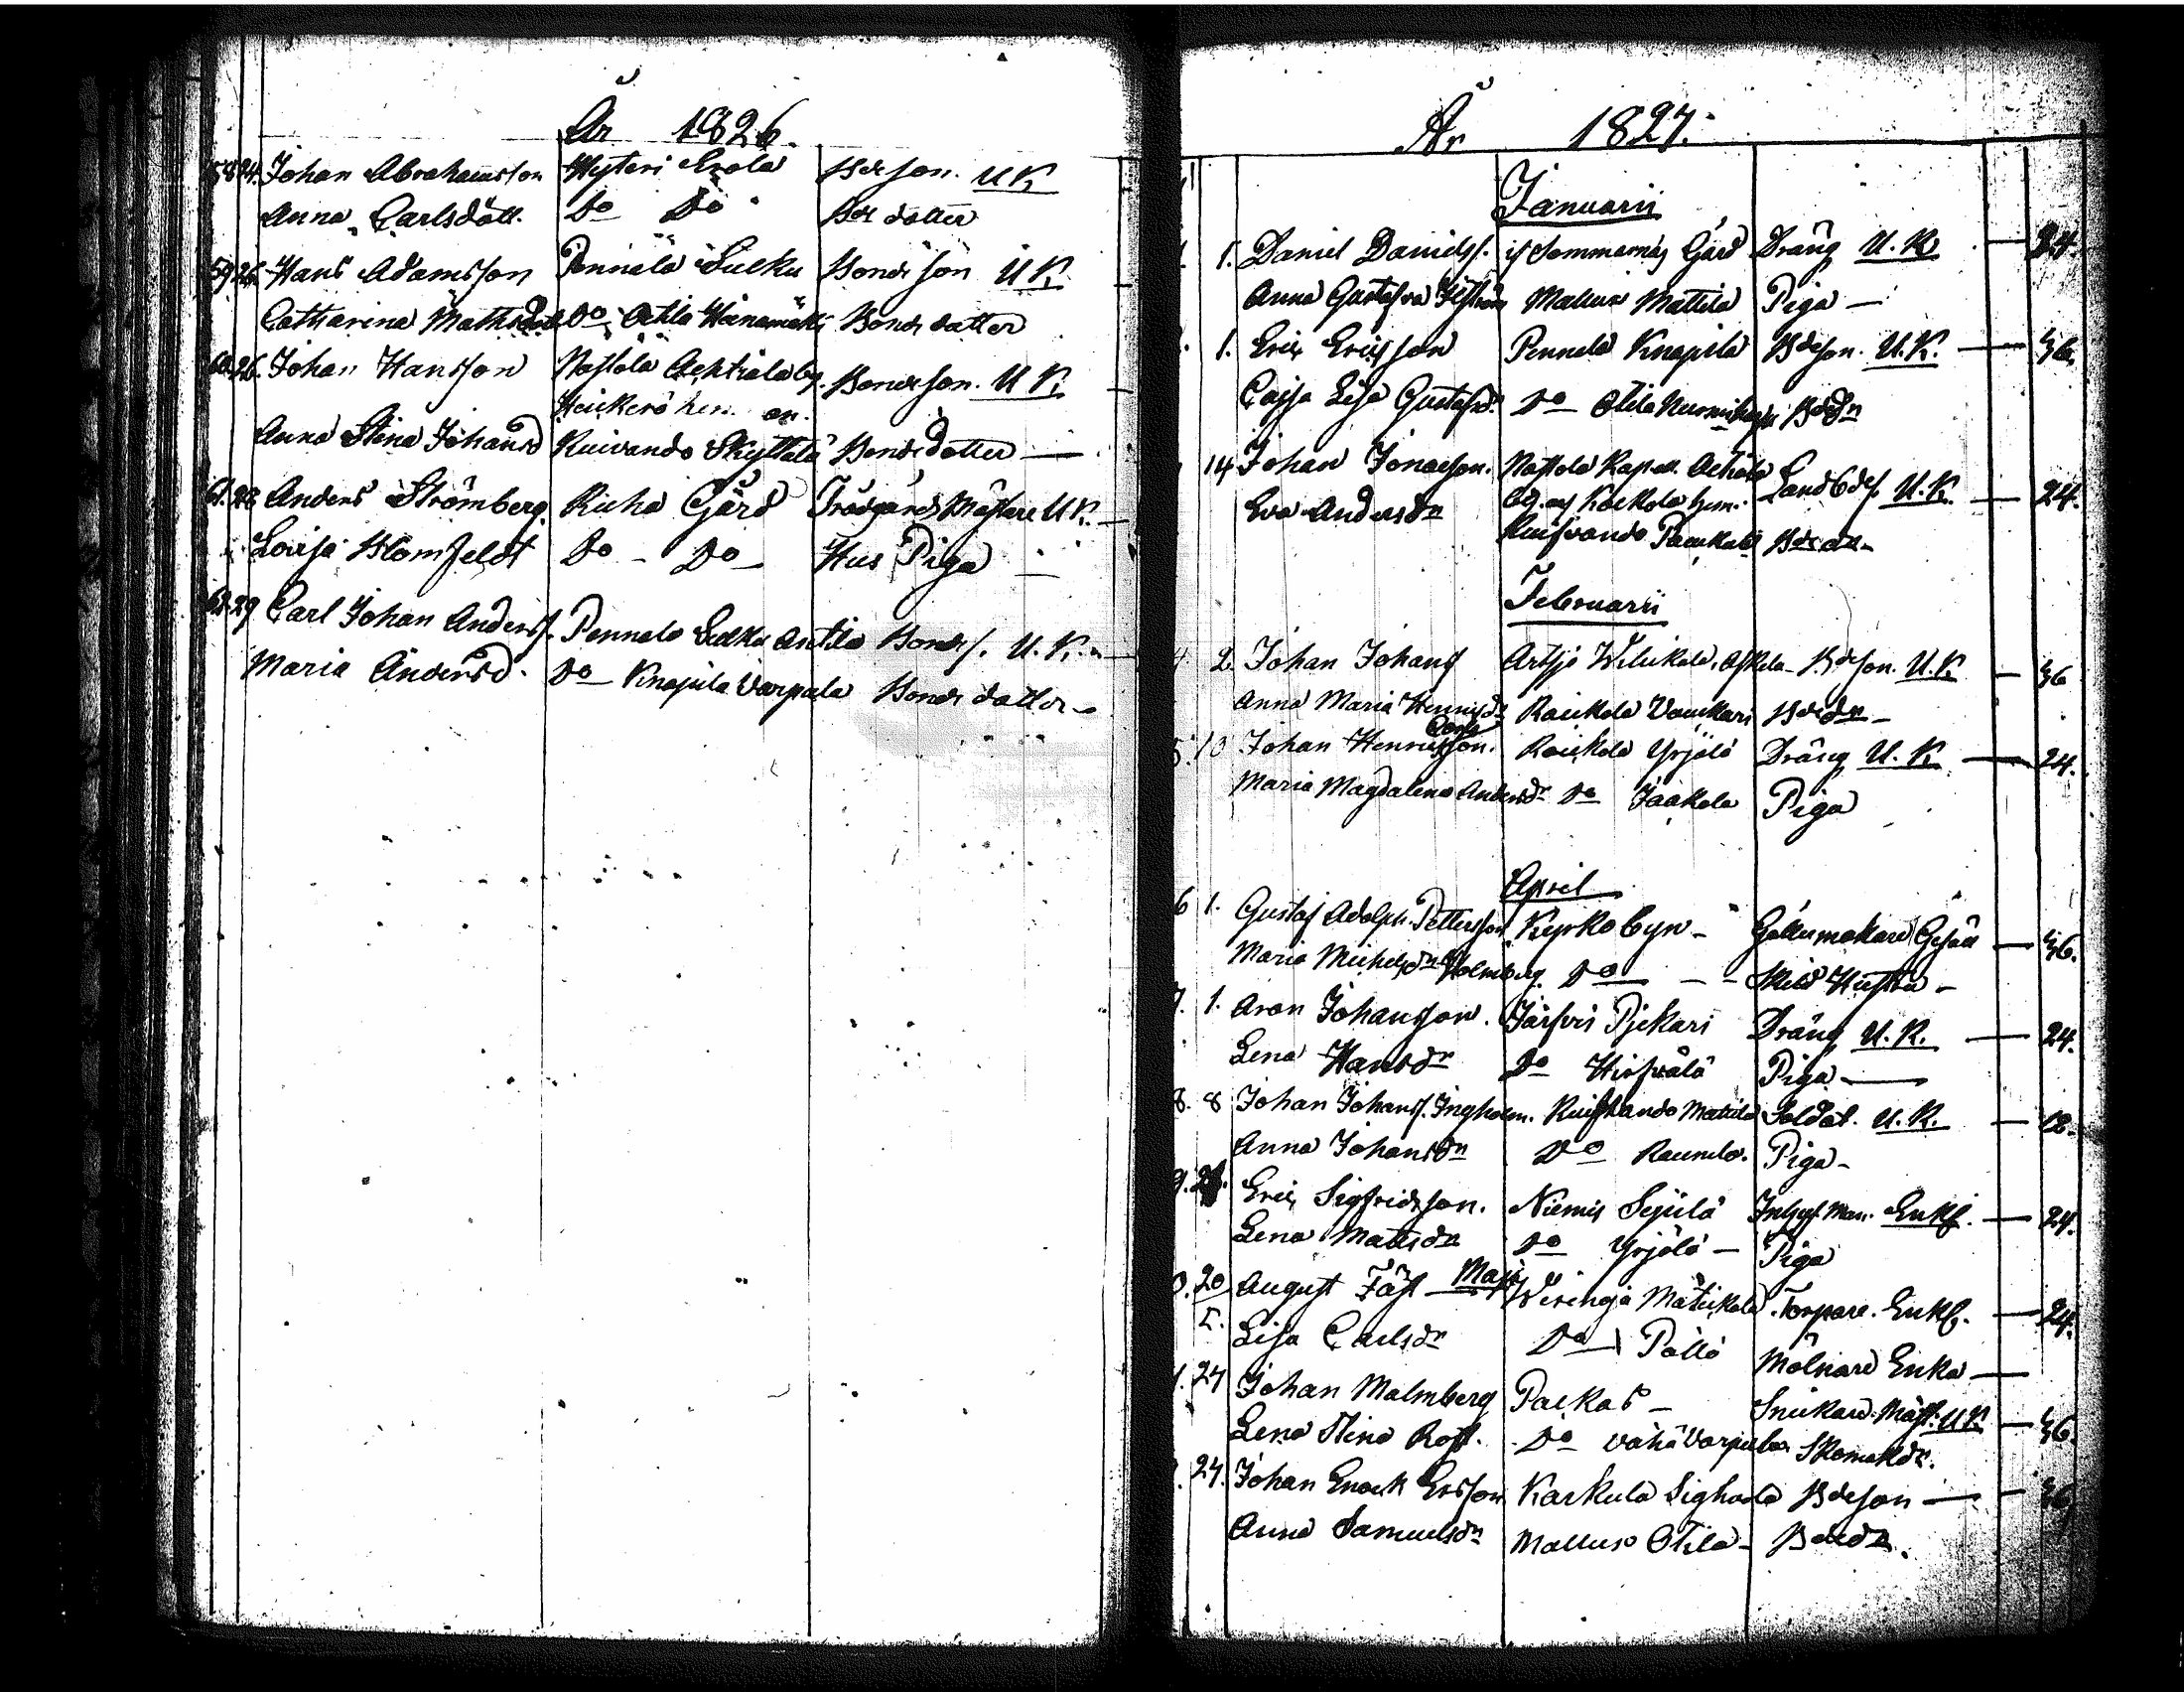 År 1826.
58 24. Johan Abrahamsson Hyteri Erola Bdeson. U K
Anna Carlsdott. Do Do Bde dotter
59 26. Hans Adamsson Pennälä Sulku Bondeson U K.
Catharina Mathsdott. Do Otila Heinamäki Bonde dotter
60. 26. Johan Hansson Nastola Achtiala by. Bondeson. U K
Heickerö hem. an.
Anna Stina Johansd Kuivando Skyttälä Bondedotter —
61. 28 Anders Strömberg. Gård Trädgårds Mästare U K. —
Lovisa Blomfeldt Do - Do - Hus Piga —
62. 29 Carl Johan Anderss. Pennala Sulku Antila Bondes. U. K. —
Maria Andersd. Do — Knapila Varpula Bonde dotter —
År 1827.
Januarii
1. Daniel Daniels. Gård Dräng U. K. — 24.
Anna Gustafva Mallus Mattila Piga —
1. Eric Ericsson Pennala Knapila Bdeson. U. K. — 36.
Cajsa Lisa Gustafsd. Do — Otila Bdedr
14 Johan Jonasson. Nastola Kapell Achtiala Landbdes. U. K. — 24.
Eva Andersdr by. och Kockola hem.
Kuifvando Paukula Bdedr —
Februarii
4. 2. Johan Johans Artjo Bdeson. U. K — 36
Anna Maria Henricsdr Raukola Vaukari Bdedr —
Carls
5. 10 Johan Henricsson. Raukola Yrjölä Dräng U. K — 24.
Maria Magdalena Andersdr Do Jaakola Piga
April
6 1. Gustaf Adolph Pettersson Kyrkobyn — Gesäll — 36.
Maria Michelsdr Holmberg. Do — - - Skild Hustru —
7. 1. Aron Johansson. Järfvis Pjekari Dräng U. K. — 24.
Lena Hansdr Do Hirfvälä Piga —
8. 8 Johan Johans. Ingholm. Kuifvando Mattila Soldat. U. K. — 12.
Anna Johansdr Do Raumla. Piga —
9. Eric Sigfridsson. Niemis Sejulä Inhys Man. Enkl. — 24.
Lena Matsdr Do Yrjölä — Piga
Maji
0. 20 August Fäst — Virenoja Matickala. Torpare. Enkl. — 24.
Lisa Carlsdr Do — Pällö Mölnare Enka —
1. 27 Johan Malmberg Paikas — Snickare Mäst. U K — 36.
Lena Stina Rost. Do Vähä Varpula Skomakdr.
27. Johan Enock Ersson Karkula Sighola Bdeson — 36
Anna Samuelsdr Mallus Otila — Bdedr.